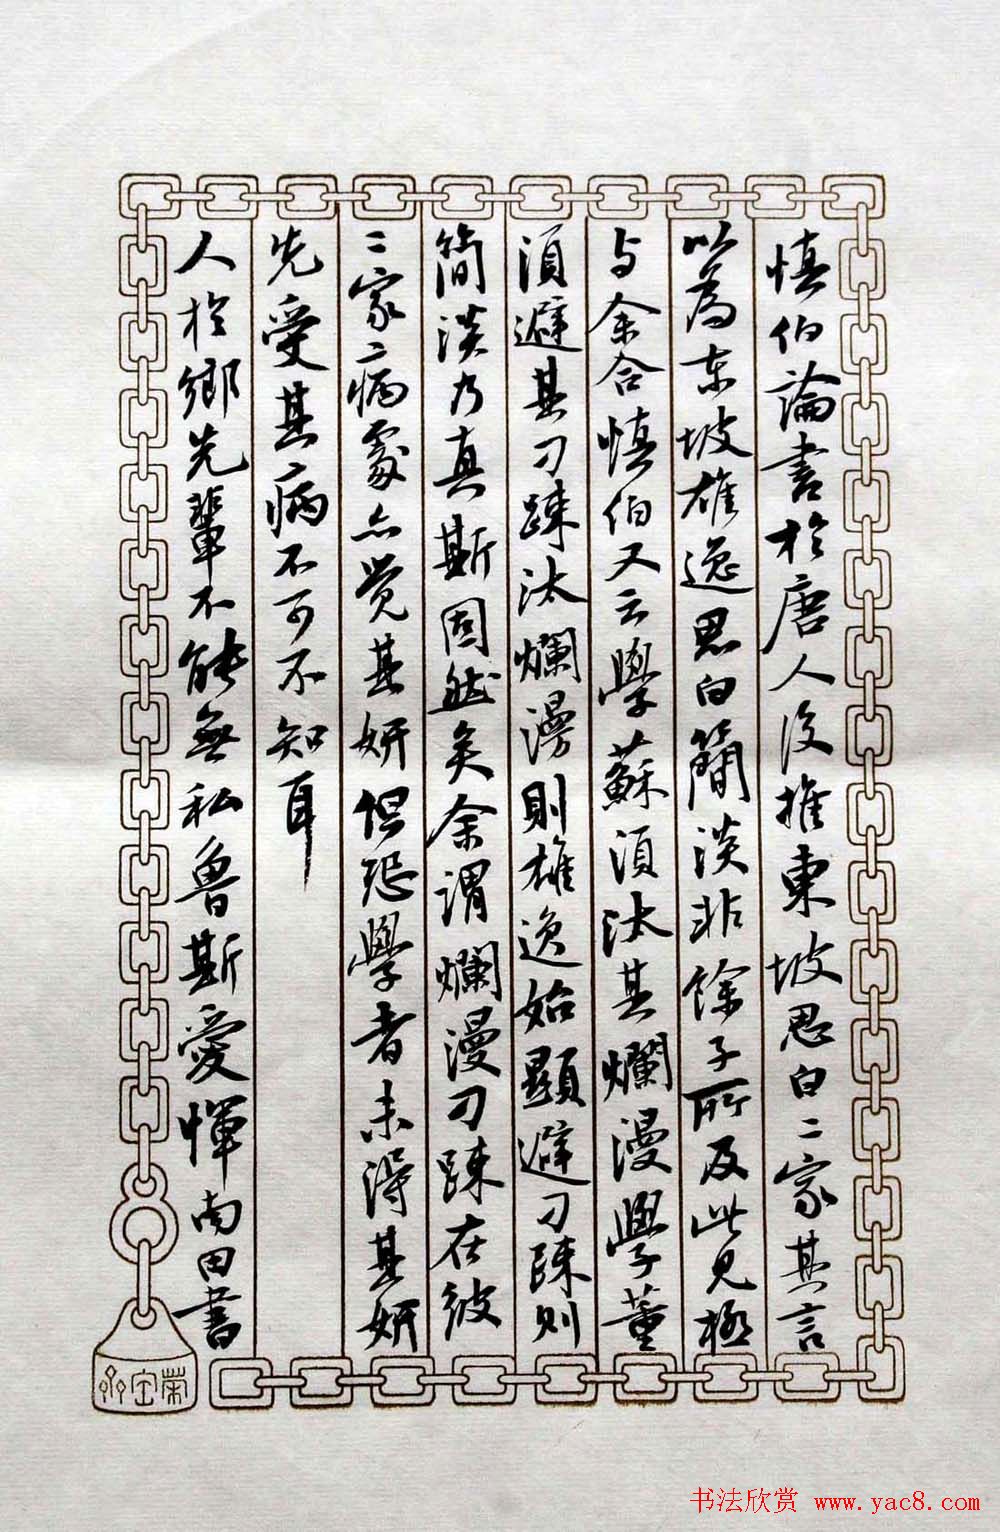 慎伯論書於唐人后推東坡思白二家其言
以為东坡雄逸思白簡淡非餘子所及此見極
与余合慎伯又云學蘇須汰其爛漫學董
須避其刁疎汰爛漫則雄逸始顯避刁疎則
簡淡乃真斯固然矣余謂爛漫刁疎在彼
二家二病處亦觉其妍但恐學者未得其妍
先受其病不可不知耳
人於鄉先輩不能無私鲁斯愛惲南田書
荣宝
书法欣赏 www.yac8.com